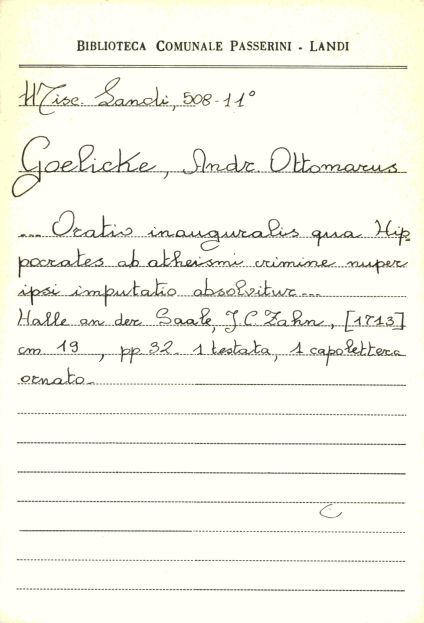 BIBLIOTECA COMUNALE PASSERINI - LANDI
Misc. Landi, 508-11°
Goelicke, Andr. Ottomarus
... Oratio inauguralis qua Hip-
pocrates ab atheismi crimine nuper
ipsi imputatio absolvitur...
Halle an der Saale, J. C. Zahn, [1713]
cm 19, pp. 32. 1 testata, 1 capolettera
ornato.
C